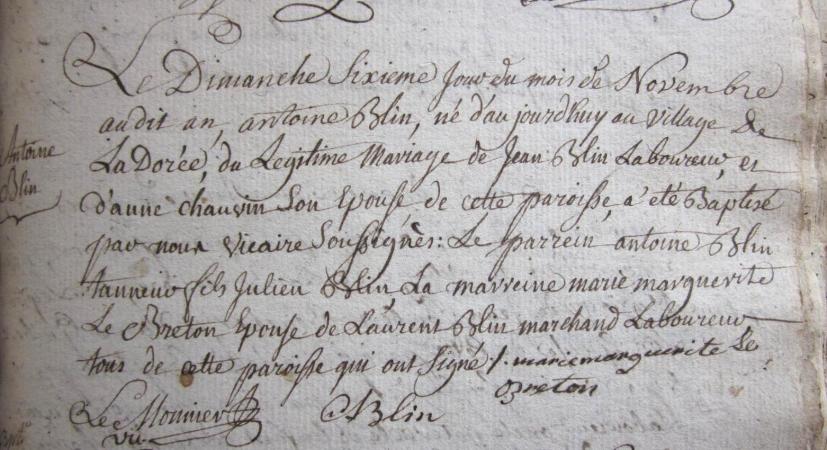 Le Dimanche Sixieme Jour du mois de Novembre
audit an, antoine Blin, né d'aujourd'huy au village de
Antoine
Blin
La Dorée, du Legitime Mariage de Jean Blin Laboureur, et
d'anne chauvin Son Epouse de cette paroisse, a été Baptisé
par nous Vicaire Soussignés: Le parrein antoine Blin
tanneur fils Julien Blin, La marreine marie marguerite
Le Breton Epouse de Laurent Blin marchand Laboureur
tous de cette paroisse qui ont Signé ·/. marie marguerite Le
Breton
Le Monnier
vic
ABlin